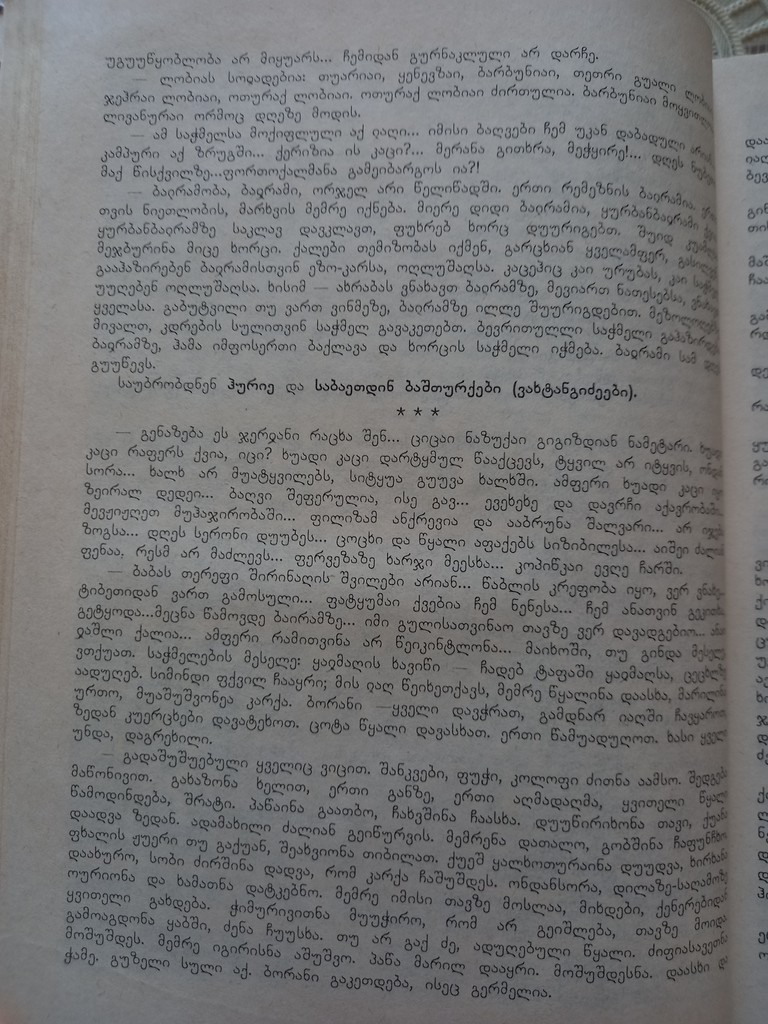 უგუუწყობლობა არ მიყუარს... ჩემიდან გურნაკლული არ დარჩე.
— ლობიას სოჲადებია: თუარიაი, ყენევზაი, ბარბუნიაი, თეთრი გუალი
ჯეჰრაი ლობიაი, ოთურაქ ლობიაი. ოთურაქ ლობიაი ძირთულია. ბარბუნიაი
ლივანურაი ორმოც დღეზე მოდის.
— ამ საჭმელსა მოქიფლული აქ ჲაღი... იმისი ბაღვები ჩემ უკან დაბადული
კამპური აქ ზრუგში... ქერიზია ის კაცი?... მერანა გითხრა, მეჭყირე!... დღეს
მაქ წისქვილზე...ფორთოქალმანა გამეიბარგოს ია?!
— ბაჲრამობა, ბაჲრამი, ორჯელ არი წელიწადში. ერთი რემეზნის ბაჲრამია.
თვის ნიეთლობის, მარხვის მემრე იქნება. მიერე დიდი ბაჲრამია, ყურბანბაჲრამი
ყურბანბაჲრამზე საკლავ დავკლავთ, ფუხრებ ხორც დუურიგებთ. შუიდ
მეჯბურინა მიცე ხორცი. ქალები თემიზობას იქმენ, გარცხიან ყველამფერ,
გააჰაზირებენ ბაჲრამისთვინ ეზო-კარსა, ოღლუშაღსა. კაცეჰიც კაი ურუბას, კაი
უუღებენ ოღლუშაღსა. ხისიმ — ახრაბას ვნახავთ ბაჲრამზე, მევიართ ნათესებსა,
ყველასა. გაბუტვილი თუ ვართ ვინმეზე, ბაჲრამზე ილლე შუურიგდებით.
მივალთ, კდრების სულითვინ საჭმელ გავაკეთებთ. ბევრითულლი საჭმელი
ბაჲრამზე, ჰამა იმფოსერთი ბაქლავა და ხორცის საჭმელი იჭმება. ბაჲრამი სამ
გუუწევს.
საუბრობდნენ ჰურიე და საბაეთდინ ბაშთურქები (ვახტანგიძეები).
* * *
— გენაზება ეს ჯერჲანი რაცხა შენ... ციცაი ნაზუქაი გიგიზდიან ნამეტარი.
კაცი რაფერს ქვია, იცი? ხუადი კაცი დარტყმულ წააქცევს, ტყვილ არ იტყვის,
სორა... ხალხ არ მუატყვილებს, სიტყუა გუუვა ხალხში. ამფერი ხუადი კაცი
ზეირალ დედეი... ბაღვი შეფერულია, ისე გავ... ევეხეხე და დავრჩი
მევჟიჟღეთ მუჰაჯირობაში... ფილიზამ ანქრევია და ააბრუნა შალვარი... არ
ზოგსა... დღეს სერონი დუუბეს... ცოცხი და წყალი აფაქებს სიზიბილესა... აიშეი
ფენაა, რესმ არ მაძლევს... ფერვეზაზე ხარჯი მეესხა... კოპიწკაი ევღე ჩარში.
— ბაბას თერეფი შირინაღის შვილები არიან... წაბლის კრეფობა იყო, ვერ
ტიბეთიდან ვართ გამოსული... ფატყუმაი ქვებია ჩემ ნენესა... ჩემ ანათვინ
გეტყოდა...მეცნა წამოვდე ბაირამზე... იმი გულისათვინაო თავზე ვერ დავადგებიო...
ჲაშლი ქალია... ამფერი რამითვინა არ წეიკინტლონა... მაიხოში, თუ გინდა
ვთქუათ. საჭმელების მესელე: ყაჲმაღის ხავიწი — ჩადებ ტაფაში ყაჲმაღსა,
აადუღებ. სიმინდი ფქვილ ჩააყრი; მის ჲაღ წეიხეთქავს, მემრე წყალინა დაასხა,
ურთო, მუაშუშვონეა კარქა. ბორანი —ყველი დავჭრათ, გამდნარ იაღში
ზედან კუერცხები დავატეხოთ. ცოტა წყალი დავასხათ. ერთი წამუადუღოთ. ხასი
უნდა, დაგრეხილი.
— გადაშუშუებული ყველიც ვიცით. შანკვები, ფუჭი, კოლოფი ძითნა აამსო.
მაწონივით. გახაზონა ხელით, ერთი განზე, ერთი აღმადაღმა, ყვითელი
წამოდინდება, შრატი. პაწაინა გაათბო, ჩახვშინა ჩაასხა. დუუწირიხონა თავი,
დაადვა ზედან. ადამახილი ძალიან გეიწურვის. მემრენა დათალო, გობშინა
ფხალის ჟუერი თუ გაქუან, შეახვიონა თიბილათ. ქუეშ ყალხოთურაინა დუუდვა,
დაახურო, სობი ძირშინა დადვა, რომ კარქა ჩაშუშდეს. ონდანსორა, დილაზე-საღამოზე
ოურიონა და ხამათნა დატკებნო. მემრე იმისი თავზე მოსლაა, მიხდები,
ყვითელი გახდება. ჭიმურივითნა მუუჭირო, რომ არ გეიშლება, თავზე
გამოაგდონა ყაბში, ძენა ჩუუსხა. თუ არ გაქ ძე, ადუღებული წყალი.
მოშუშდეს. მემრე იგირისნა აშუშვო. პაწა მარილ დააყრი. მოშუშდესნა. დაასხი
ჭამე. გუზელი სული აქ. ბორანი გაკეთდება, ისეც გერმელია.